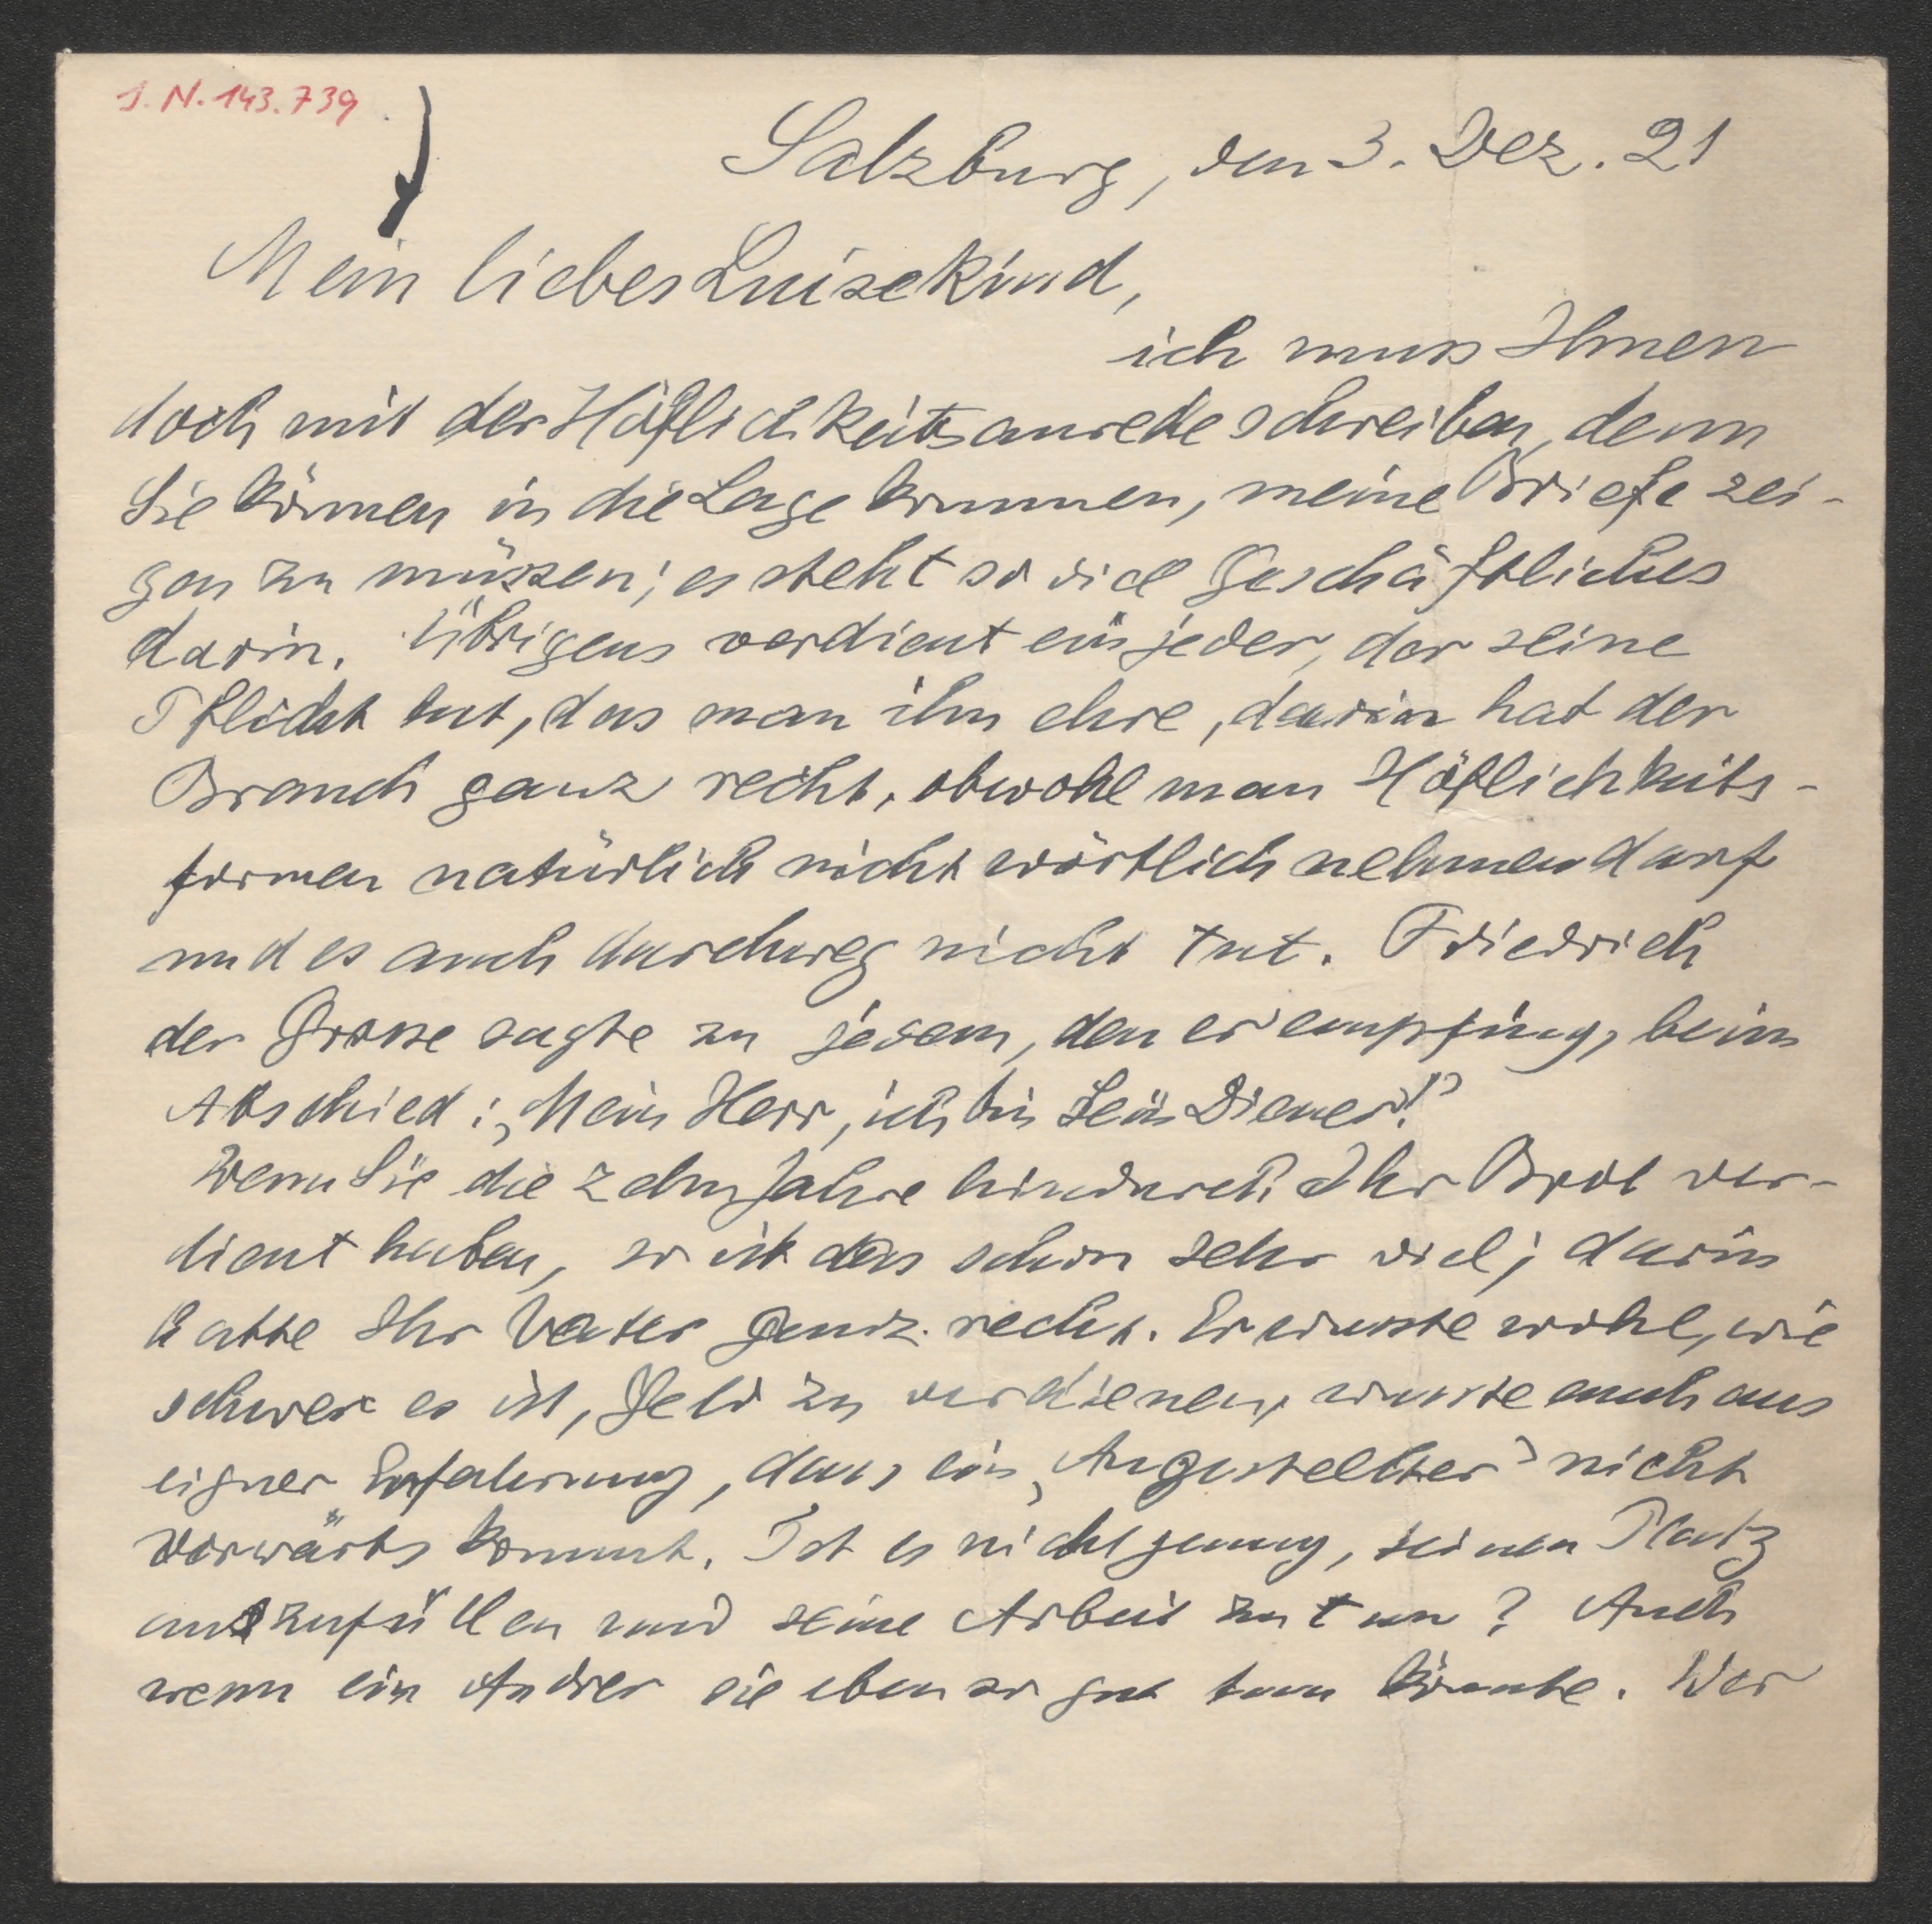 I. N. 143.739
Salzburg, den 3. Dez. 21
Mein liebes Luisekind,
ich muss Ihnen
doch mit der Höflichkeitsanrede schreiben, denn
Sie können in die Lage kommen, meine Briefe zei-
gen zu müssen; es steht so viel Geschäftliches
darin. Übrigens verdient ein jeder, der seine
Pflicht tut, das man ihn ehre, darin hat der
Brauch ganz recht, obwohl man Höflichkeits-
formen natürlich nicht wörtlich nehmen darf
und es auch durchweg nicht tut. Friedrich
der Grosse sagte zu jedem, den er empfing, beim
Abschied: „Mein Herr, ich bin Sein Diener!"
Wenn Sie die zehn Jahre hindurch Ihr Brot ver-
dient haben, so ist das schon sehr viel; darin
hatte Ihr Vater ganz recht. Er wusste wohl, wie
schwer es ist, Geld zu verdienen, wusste auch aus
eigner Erfahrung, dass ein „Angestellter" nicht
vorwärts kommt. Ist es nicht genung, seinen Platz
auszufüllen und seine Arbeit zu tun? Auch
wenn ein Andrer sie eben so gut tun könnte. Wer